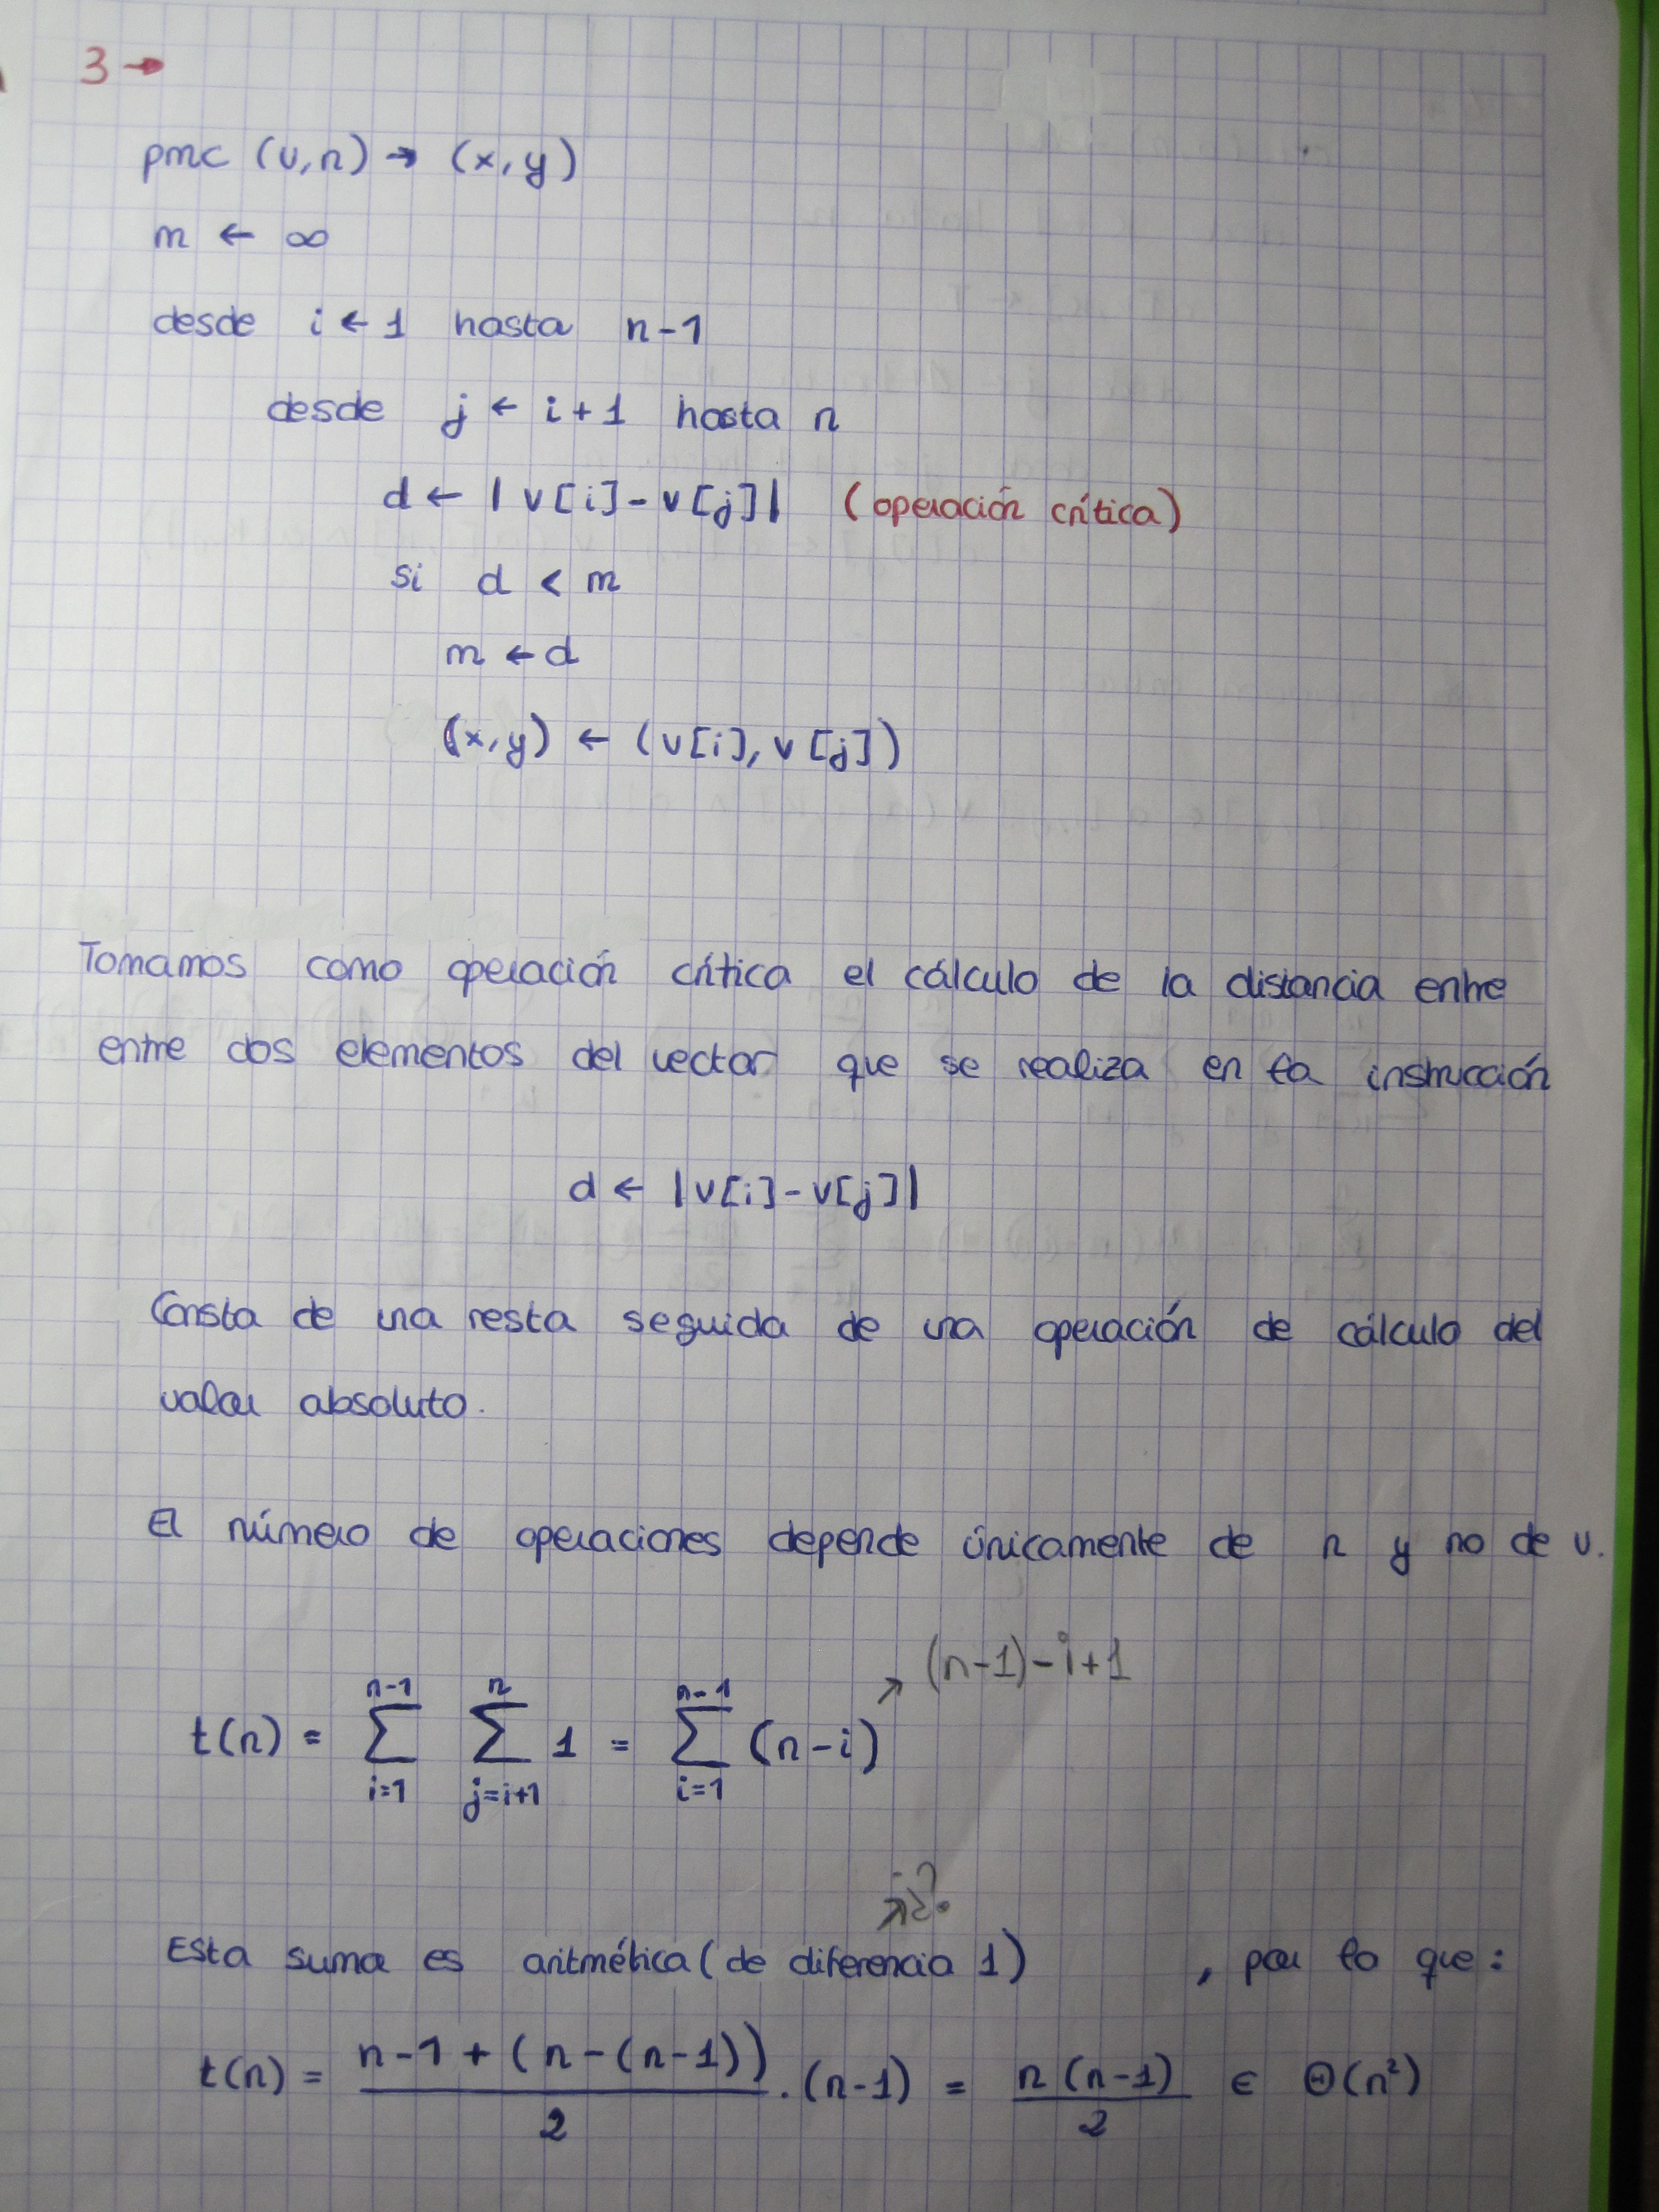 3 →
pmc (v,n) → (x,y)
m ← ∞
desde i ← 1 hasta n-1
desde j ← i+1 hasta n
d ← |v[i]-v[j]| (operación crítica)
si d < m
m ← d
(x,y) ← (v[i], v[j])
Tomamos como operación crítica el cálculo de la distancia entre
entre dos elementos del vector que se realiza en la instrucción
d ← |v[i]-v[j]|
Consta de una resta seguida de una operación de cálculo del
valor absoluto.
El número de operaciones depende únicamente de n y no de v.
↗ (n-1)-i+1
t(n) = ∑_{i=1}^{n-1} ∑_{j=i+1}^{n} 1 = ∑_{i=1}^{n-1} (n-i)
↗ ¿?
Esta suma es aritmética (de diferencia 1) , por lo que:
t(n) = \frac{n-1+(n-(n-1))}{2} · (n-1) = \frac{n(n-1)}{2} ∈ Θ(n²)